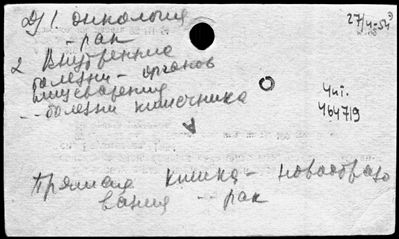 1. Онкология
- рак
2 Внутренние
болезни - органов
пищеварения
- - болезни кишечника
27/V-54
Чит.
464719
А
Прямая кишка - новообразо
вания -- рак